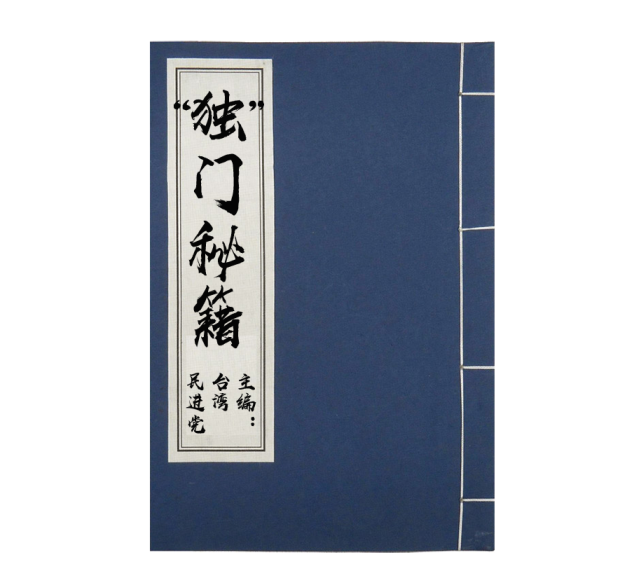 “独”门秘籍
主编：
台湾
民进党